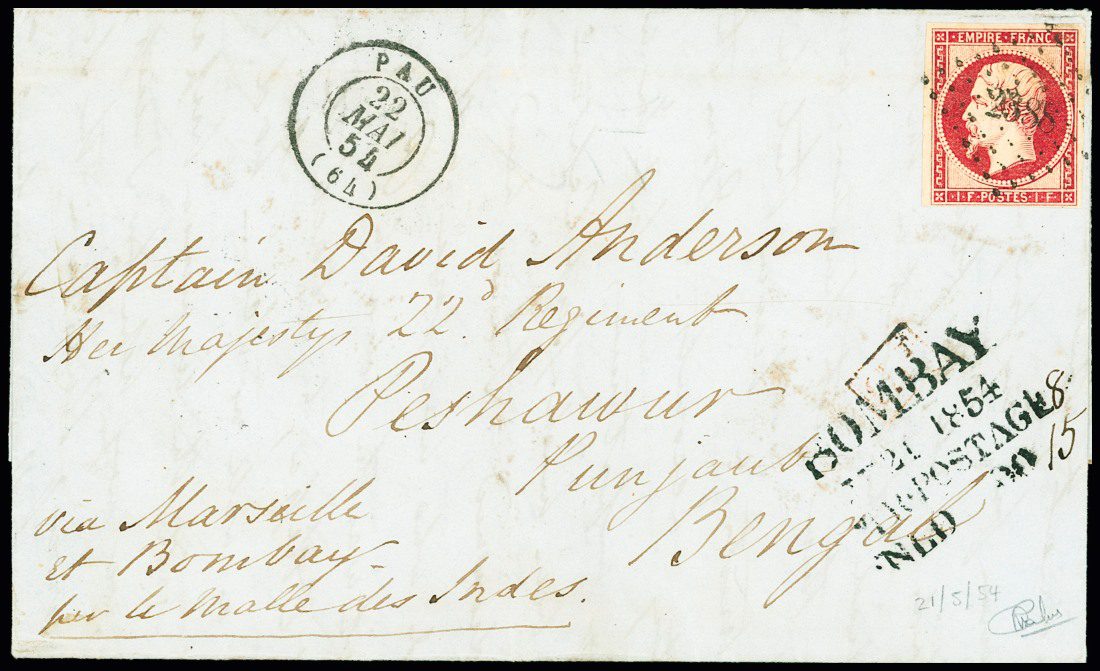 PAU
22
MAI
54
(64)
EMPIRE FRANC
2388
1·F·POSTES·1·F
Captain David Anderson
Her Majestys 22d Regiment
Peshawur
Punjaub
Bengal
via Marseille
et Bombay
per le Malle des Indes.
BOMBAY
21 1854
POSTAGE 8
NLD DO 15
21/5/54